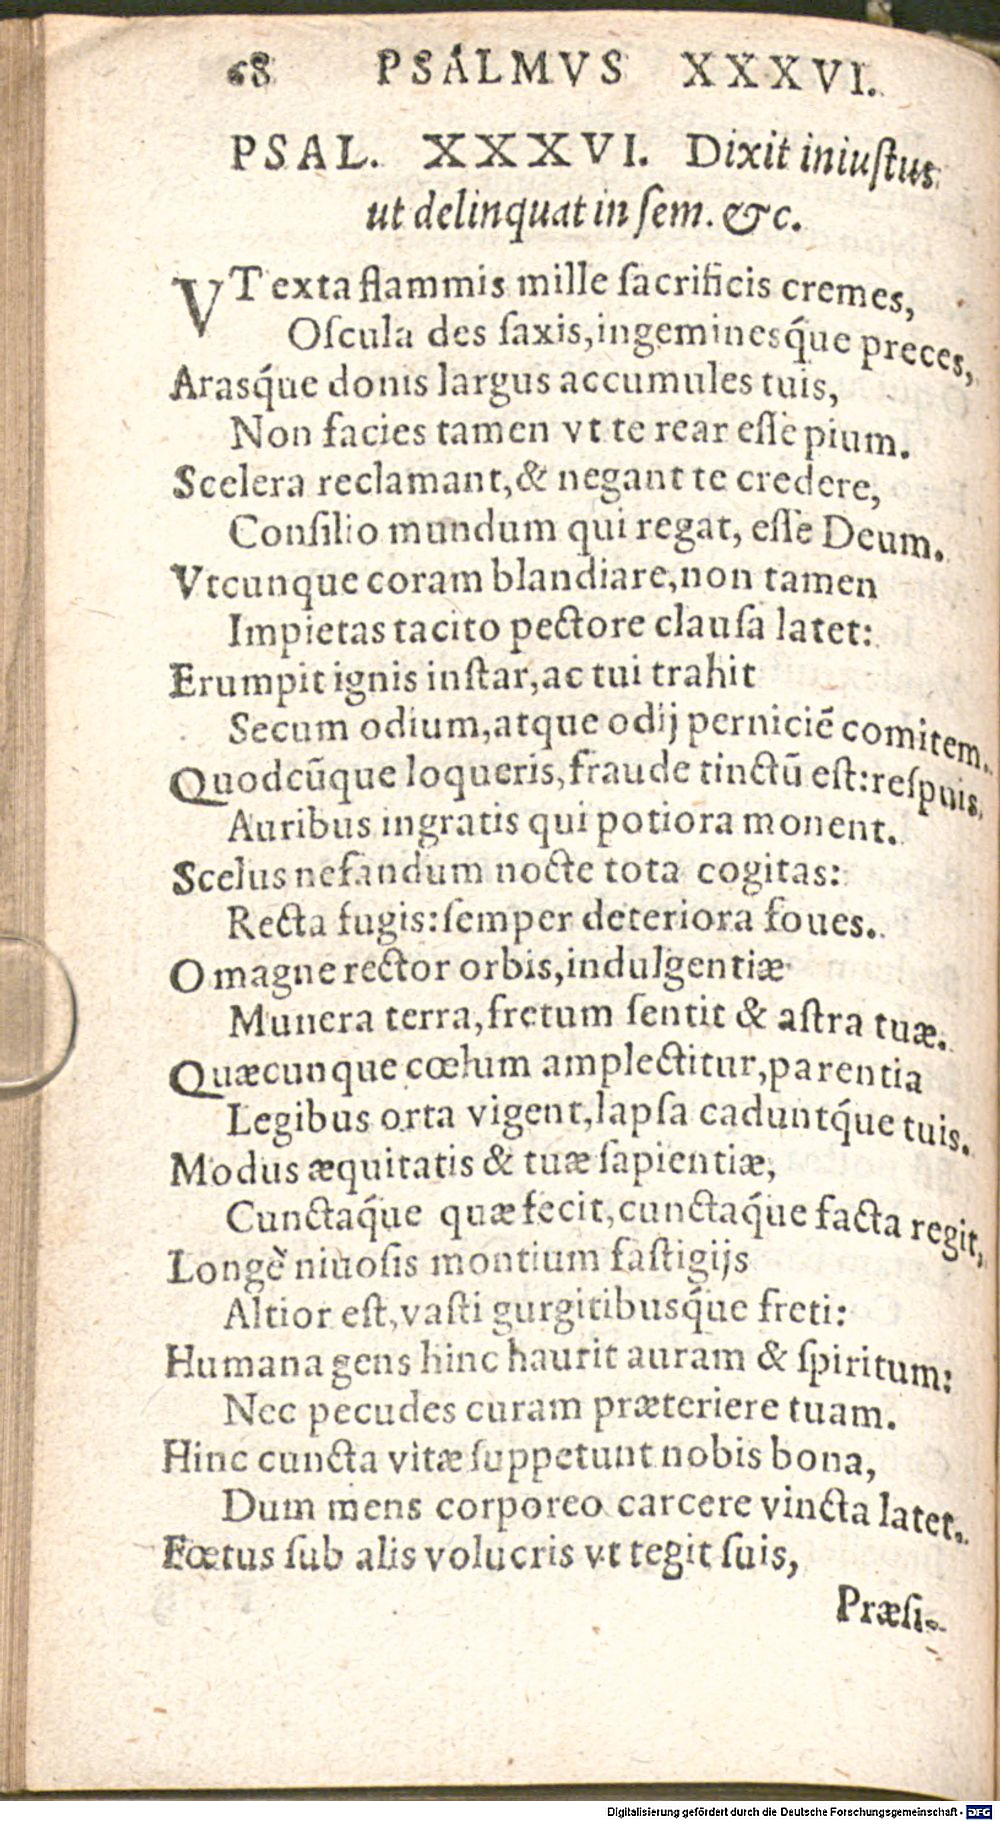 68 PSALMVS XXXVI.
PSAL. XXXVI. Dixit iniuſtus
ut delinquat in ſem. &c.
VT exta flammis mille ſacrificis cremes,
Oſcula des ſaxis, ingeminesq́ue preces,
Arasq́ue donis largus accumules tuis,
Non facies tamen vt te rear eſſe pium.
Scelera reclamant, & negant te credere,
Conſilio mundum qui regat, eſſe Deum.
Vtcunque coram blandiare, non tamen
Impietas tacito pectore clauſa latet:
Erumpit ignis inſtar, ac tui trahit
Secum odium, atque odij perniciē comitem.
Quodcūque loqueris, fraude tinctū eſt: reſpuis,
Auribus ingratis qui potiora monent.
Scelus nefandum nocte tota cogitas:
Recta fugis: ſemper deteriora foues.
O magne rector orbis, indulgentiæ
Munera terra, fretum ſentit & aſtra tuæ.
Quæcunque cœlum amplectitur, parentia
Legibus orta vigent, lapſa caduntq́ue tuis.
Modus æquitatis & tuæ ſapientiæ,
Cunctaq́ue quæ fecit, cunctaq́ue facta regit,
Longè niuoſis montium faſtigijs
Altior eſt, vaſti gurgitibusq́ue freti:
Humana gens hinc haurit auram & ſpiritum:
Nec pecudes curam præteriere tuam.
Hinc cuncta vitæ ſuppetunt nobis bona,
Dum mens corporeo carcere vincta latet.
Fœtus ſub alis volucris vt tegit ſuis,
Præſi-
Digitalisierung gefördert durch die Deutsche Forschungsgemeinschaft - DFG